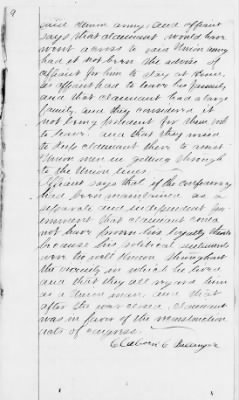 9
said Union army, and affiant
says that claimant would have
went across to said Union army
had it not been the advice of
affiant for him to stay at home,
as affiant had to leave his family
and that claimant had a large
family, and they considered it
not being prudent for them both
to leave. and that they need
to keep claimant there to assist
Union men in getting through
to the Union lines
Affiant says that if the confederacy
had been maintained as a
separate and independent government
that claimant could
not have proven his loyalty thereto
because his political sentiments
were too well known throughout
the vicinity in which he lived
and that they all regard him
as a Union man, and that
after the war closed, claimant
was in favor of the reconstruction
acts of congress.